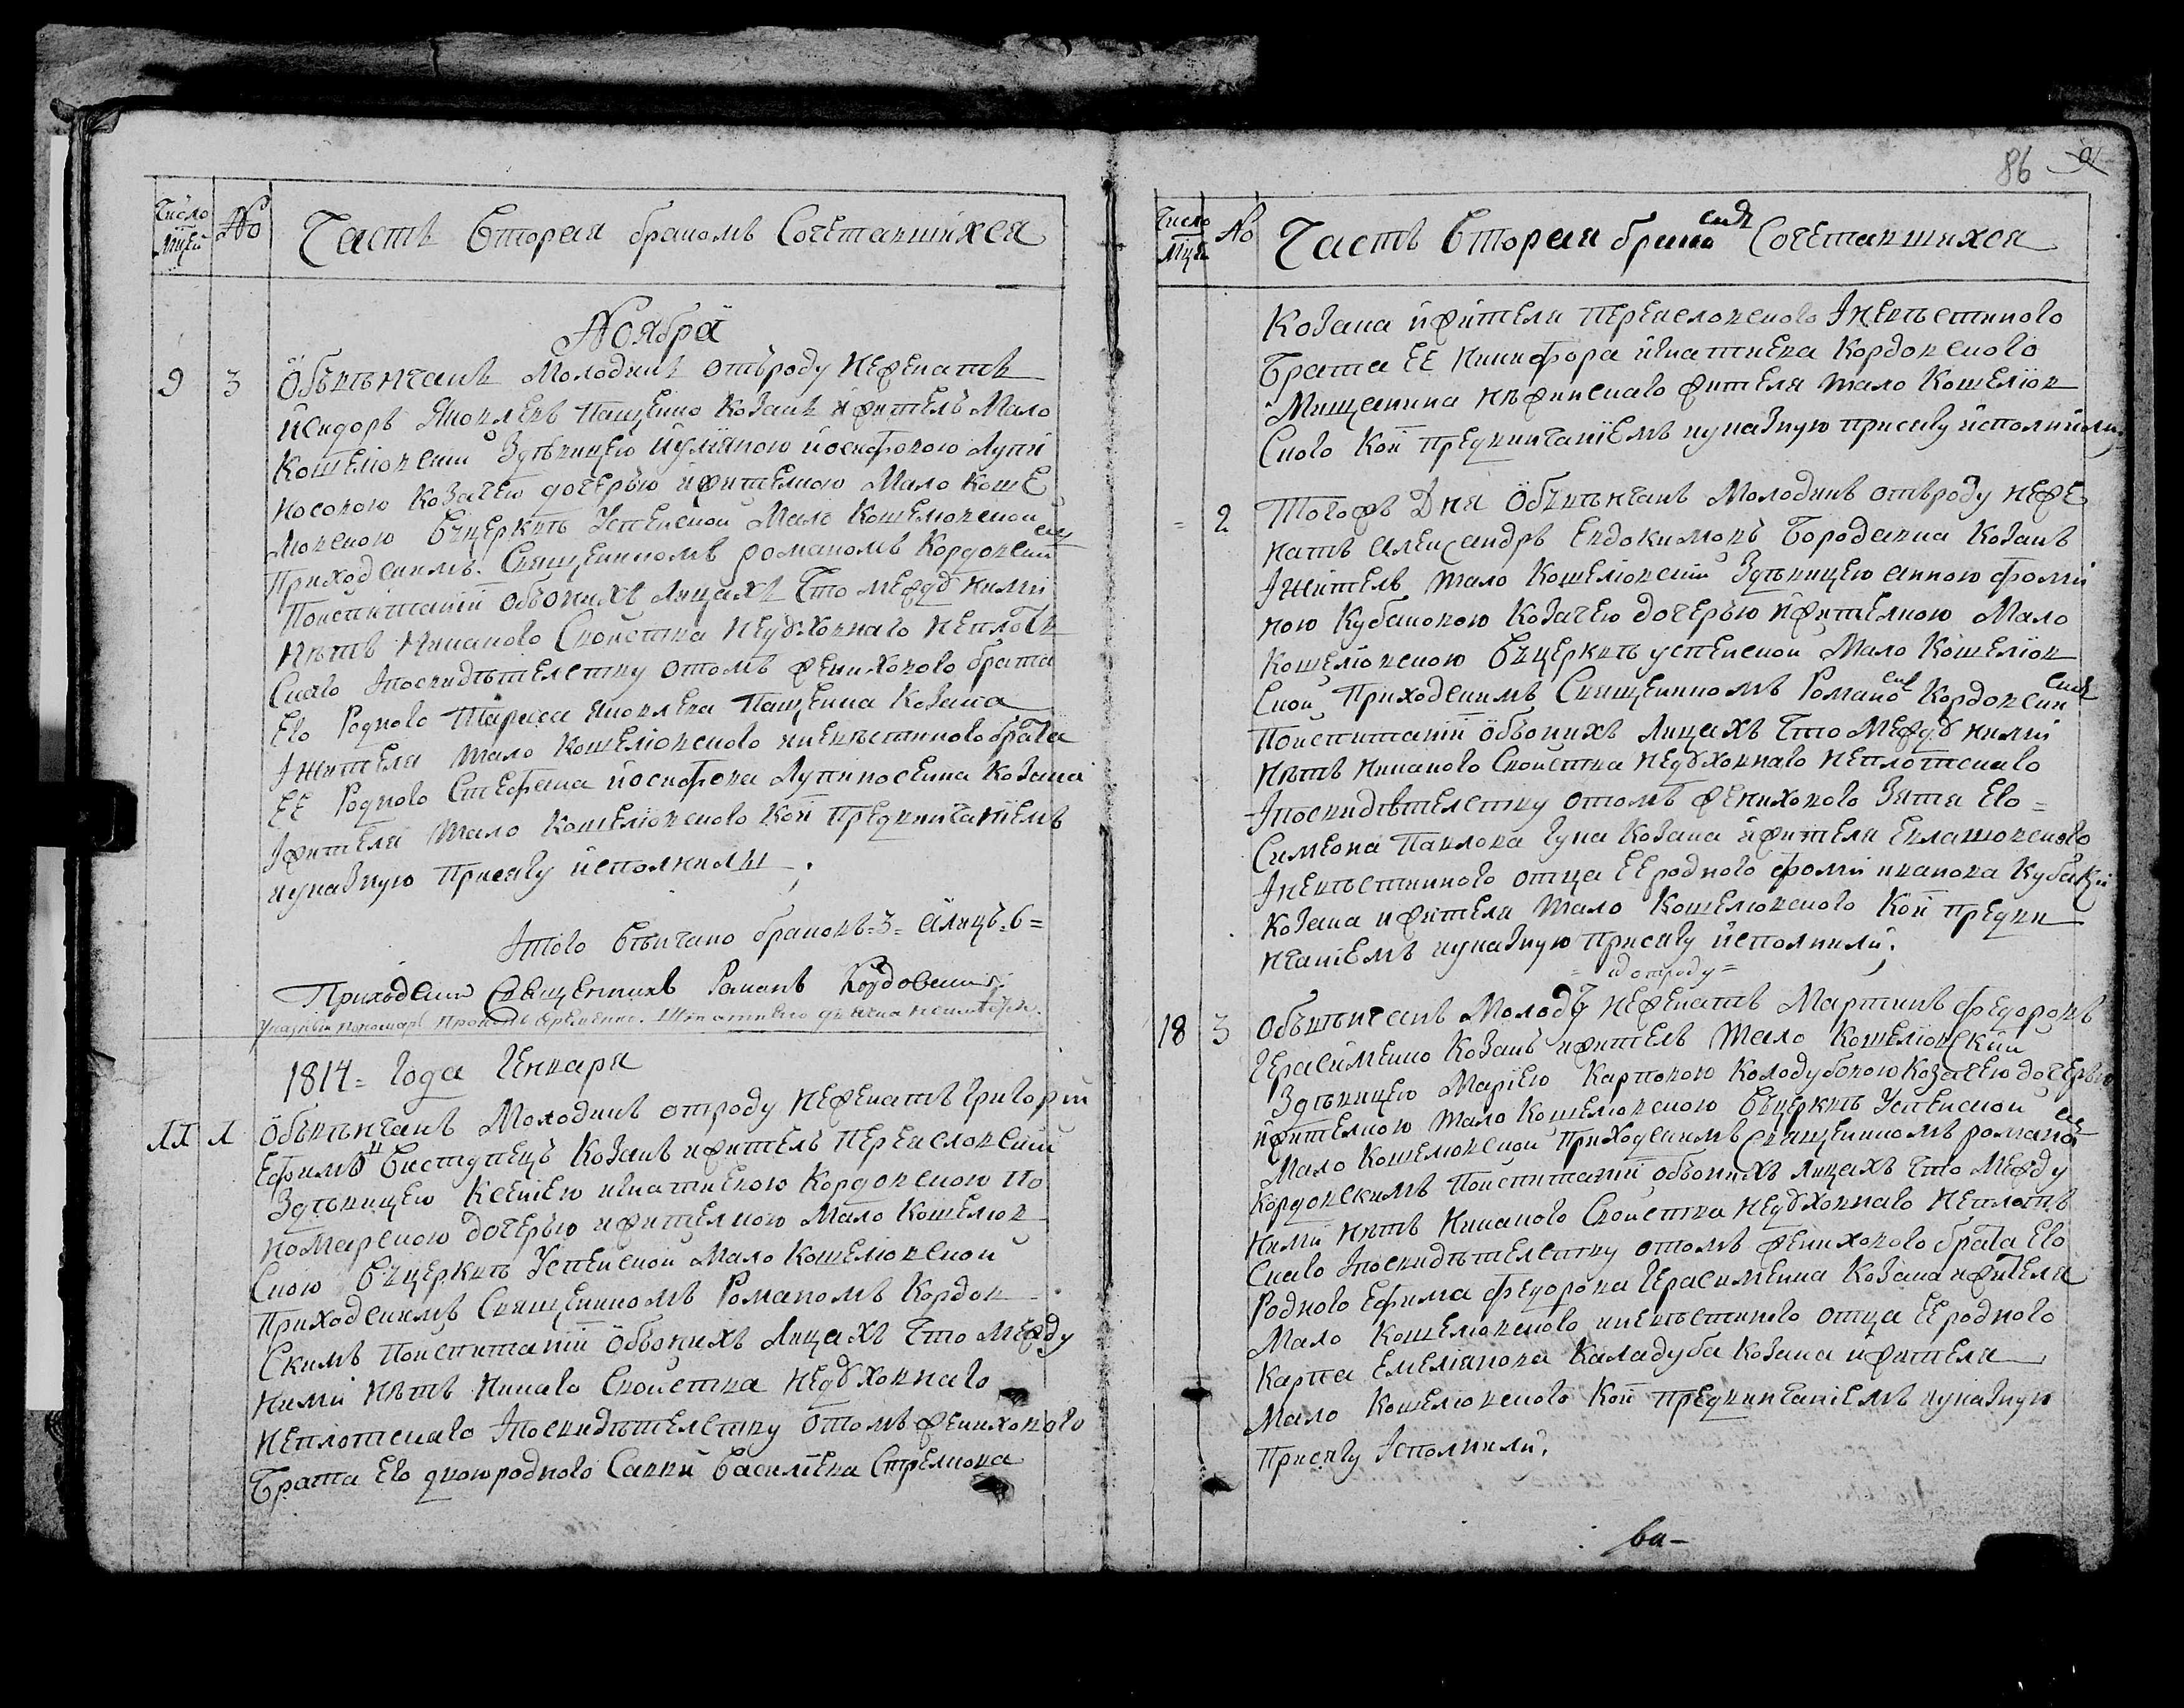 Число мцей
No
Часть Вторая бракомъ Сочетавшихся
Ноября
9 3 Объвѣнчанъ Молодикъ отъроду неженатъ
исидоръ Яковлевъ Пащенко Козакъ ижитель Мало
Кошелювский Здѣвицею иулияною иосифовою Лупи
носовою Козачею дочерью ижителною Мало Коше
лювскою Въцерквѣ Успенской Мало Кошелювской
Приходскимъ Священникомъ романомъ Кордовским
Поиспитании обьоихъ лицахъ Что между ними
Нѣтъ Никакого Свойства недуховнаго неплотъ
Скаго Ипосвидѣтелству отомъ женихового брата
Его Родного Тараса Яковлева Пащенка Козака
Ижителя Мало Кошелювского иневѣстиного брата
ЕЕ Родного Стефана иосифова Лупиносенка Козака
Ижителя Мало Кошелювского Кои предвинчаниемъ
иуказную Присягу исполнили;
Итого Вѣнчано браковъ=3= алицъ=6=
Приходский Священникъ Романъ Кордовский
1814= года Генваря
11 1 Объвѣнчанъ Молодикъ отроду неженатъ григорий
Ефимовъ Виступецъ Козакъ ижитель Переясловский
Здѣвицею Ксениею игнатиевою Кордовскою По
номарскою дочерью ижителною Мало Кошелюв
Скою Въцерквѣ Успенской Мало Кошелювской
Приходскимъ Священникомъ Романомъ Кордов
Скимъ Поиспитании Обьоихъ Лицахъ Что Между
ними нѣтъ Никаго Свойства недуховнаго
неплотскаго Ипосвидѣтелству отомъ женихового
Брата Его двоюродного Савки Василиева Стрелюка
86
Число Мцей
No
Часть Вторая бракомъ Сочетавшихся
Козака ижителя переясловского Иневѣстиного
брата ЕЕ Никифора игнатиева Кордовского
Мищанина нѣжинскаго жителя Мало Кошелюв
Ского Кои предвинчаниемъ иуказную присягу исполнили
= 2 Тогожъ Дня Объвѣнчанъ Молодикъ отъроду неже
натъ александръ Евдокимовъ Бородавка Козакъ
Ижитель Мало Кошелювский Здѣвицею анною фоми
ною Кубаковою Козачею дочерью ижителною Мало
Кошелювскою Въцерквѣ успенской Мало Кошелюв
Ской Приходскимъ Священникомъ Романомъ Кордовским
Поиспитании Обьоихъ Лицахъ Что Между ними
Нѣтъ Никакого Свойства недуховнаго неплотскаго
Ипосвидѣтелству отомъ женихового Зятя Его=
Симеона Павлова Гука Козака ижителя Еклашовского
Иневѣстинного отца ЕЕ родного фоми иванова Кубаки
Козака ижителя Мало Кошелювского Кои предви
нчаниемъ иуказную Присягу исполнили;
18 3 Объвѣнчанъ Молодикъ неженатъ Мартинъ федоровъ
Герасименко Козакъ ижитель Мало Кошелювский
Здѣвицею Мариею Карповою Колодубовою Козачею дочерью
ижителною Мало Кошелювскою Въцерквѣ Успенской
Мало Кошелювской Приходскимъ Священникомъ романомъ
Кордовскимъ Поиспитании обьоихъ лицахъ Что Между
Ними нѣтъ Никакого Свойства недуховнаго неплотъ
Скаго Ипосвидѣтелству отомъ женихового брата Его
Родного Ефима федорова Герасименка Козака ижителя
Мало Кошелювского иневѣстиного отца ЕЕ родного
Карпа Емелианова Каладуба Козака ижителя
Мало Кошелювского Кои предвинчаниемъ иуказную
Присягу Исполнили;